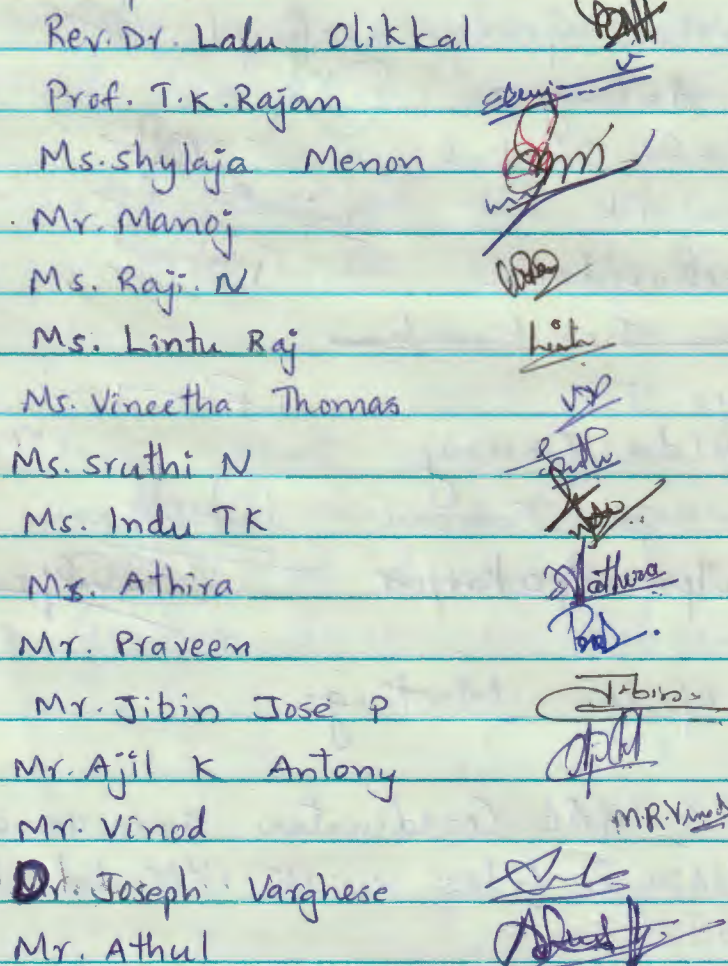 Rev. Dr. Lalu Olikkal
Prof. T.K. Rajan
Ms. shylaja Menon
Mr. Manoj
Ms. Raji. N
Ms. Lintu Raj
Ms. Vineetha Thomas
Ms. sruthi N
Ms. Indu TK
Ms. Athira Athira
Mr. Praveen
Mr. Jibin Jose P Jibin
Mr. Ajil K Antony
Mr. Vinod M.R. Vinod
Dr. Joseph Varghese
Mr. Athul